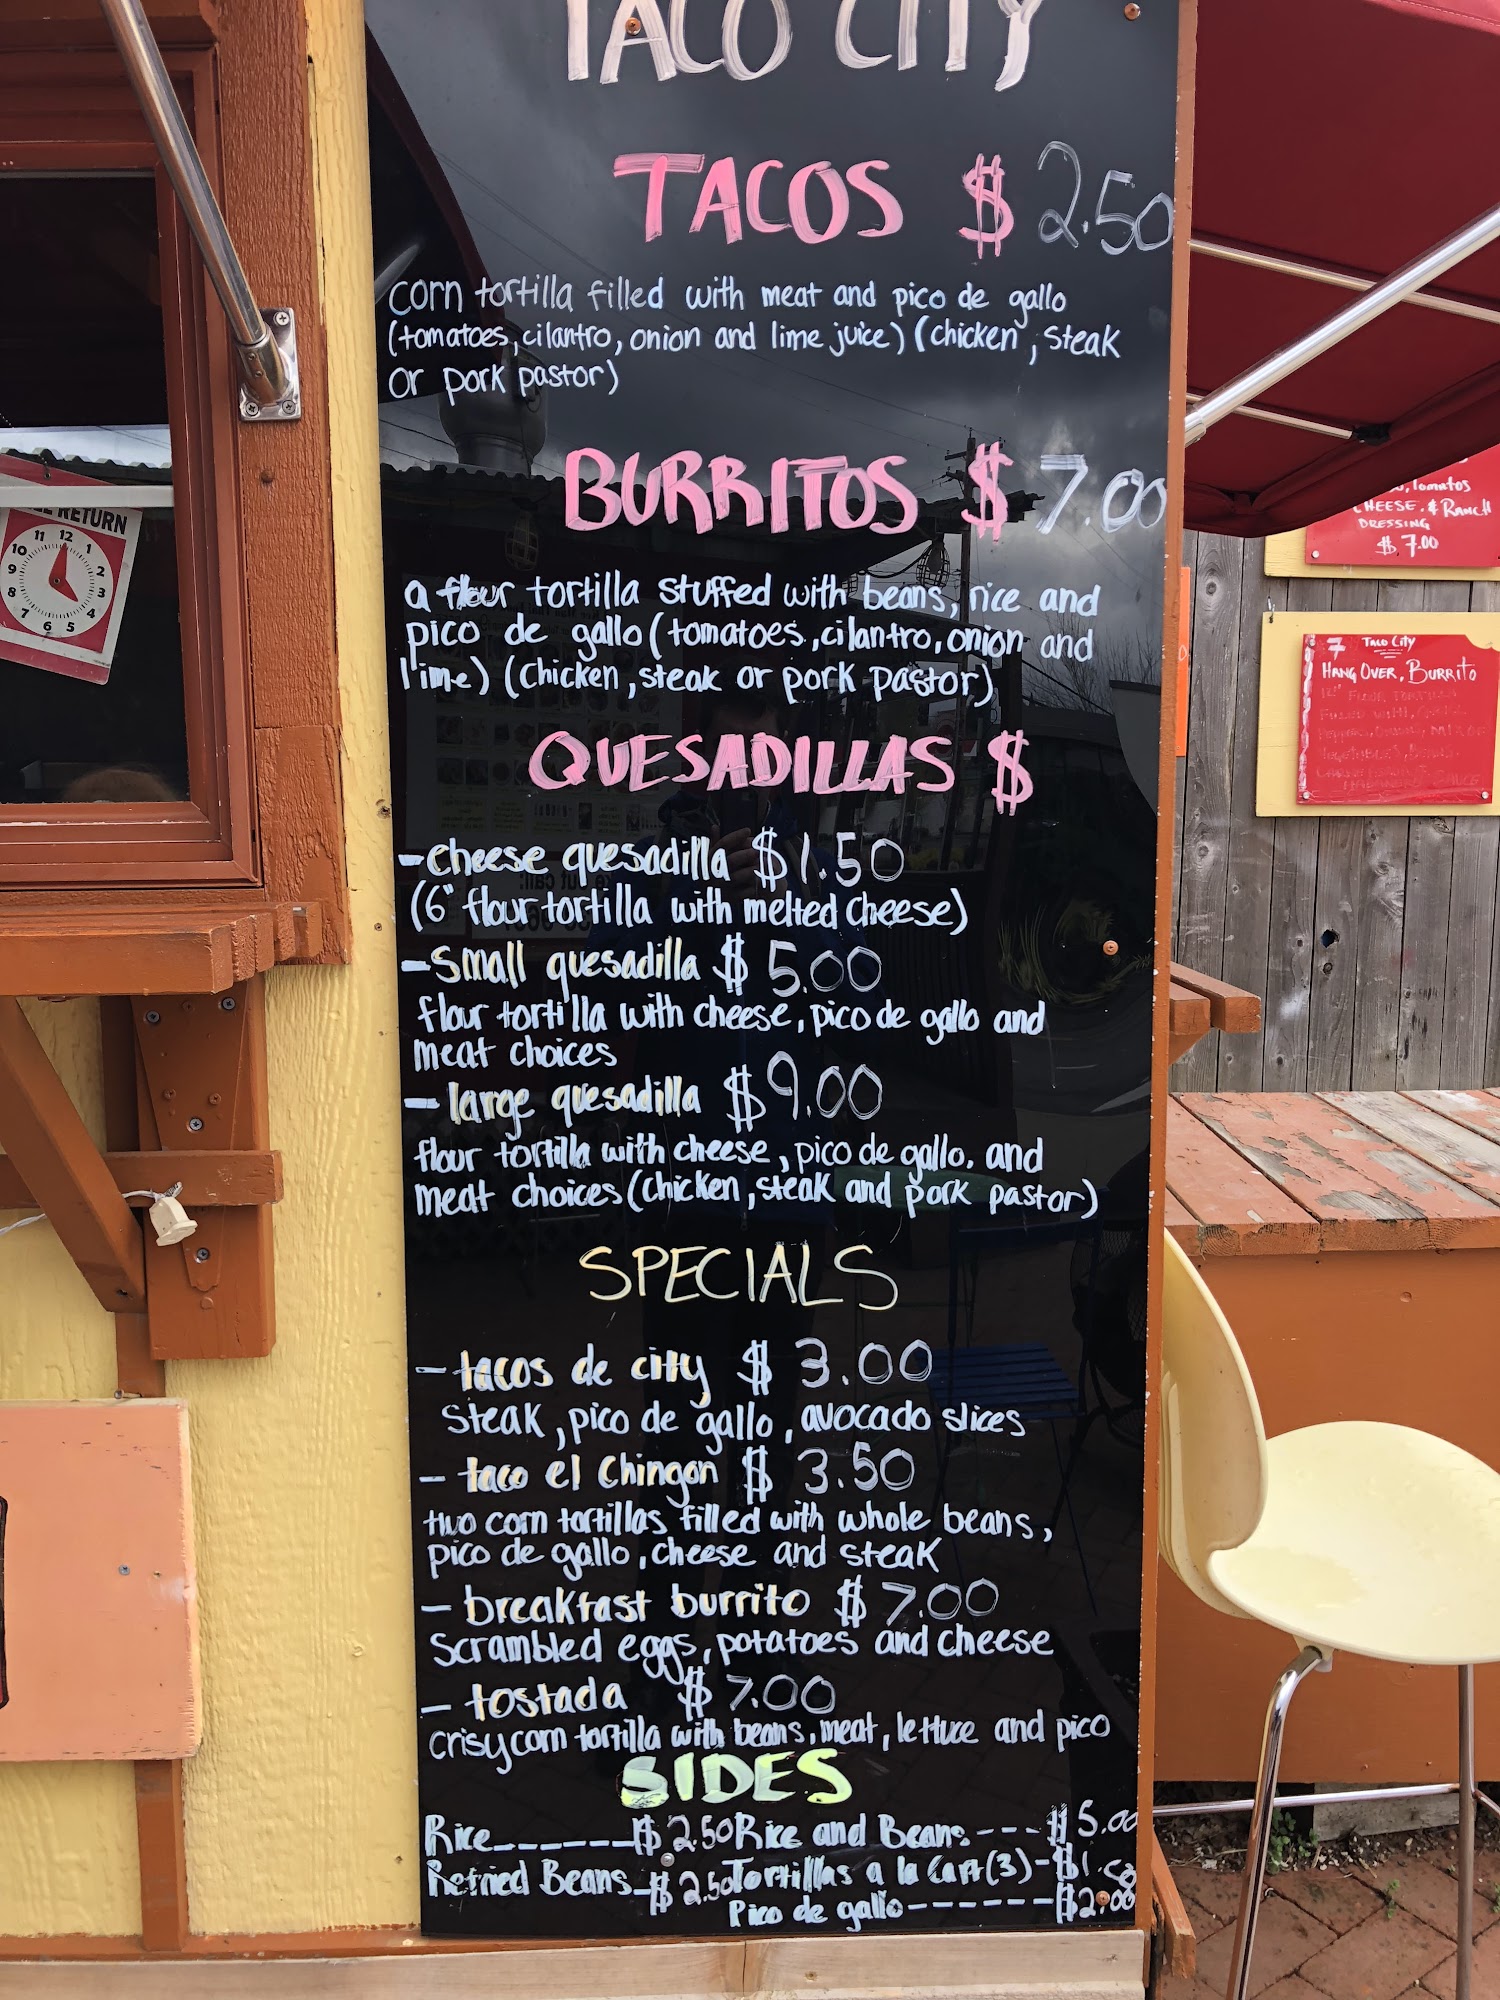 TACO CITY
TACOS $2.50
corn tortilla filled with meat and pico de gallo
(tomatoes, cilantro, onion and lime juice) (chicken, steak
or pork pastor)
BURRITOS $7.00
a flour tortilla stuffed with beans, rice and
pico de gallo (tomatoes, cilantro, onion and
lime) (chicken, steak or pork pastor)
QUESADILLAS $
-cheese quesadilla $1.50
(6" flour tortilla with melted cheese)
-small quesadilla $5.00
flour tortilla with cheese, pico de gallo and
meat choices
-large quesadilla $9.00
flour tortilla with cheese, pico de gallo, and
meat choices (chicken, steak and pork pastor)
SPECIALS
-tacos de city $3.00
steak, pico de gallo, avocado slices
-taco el Chingon $3.50
two corn tortillas filled with whole beans,
pico de gallo, cheese and steak
-breakfast burrito $7.00
scrambled eggs, potatoes and cheese
-tostada $7.00
crisy corn tortilla with beans, meat, lettuce and pico
SIDES
Rice------$2.50 Rice and Beans---$5.00
Refried Beans-$2.50 Tortilllas a la Cart (3)-$1.
Pico de gallo------$2.00
RETURN
11 12 1
10 2
9 3
8 4
7 6 5
Tomatos
CHEESE, & RANCH
DRESSING
$7.00
7 TACO CITY
HANG OVER, BURRITO
12" FLOUR TORTILLA